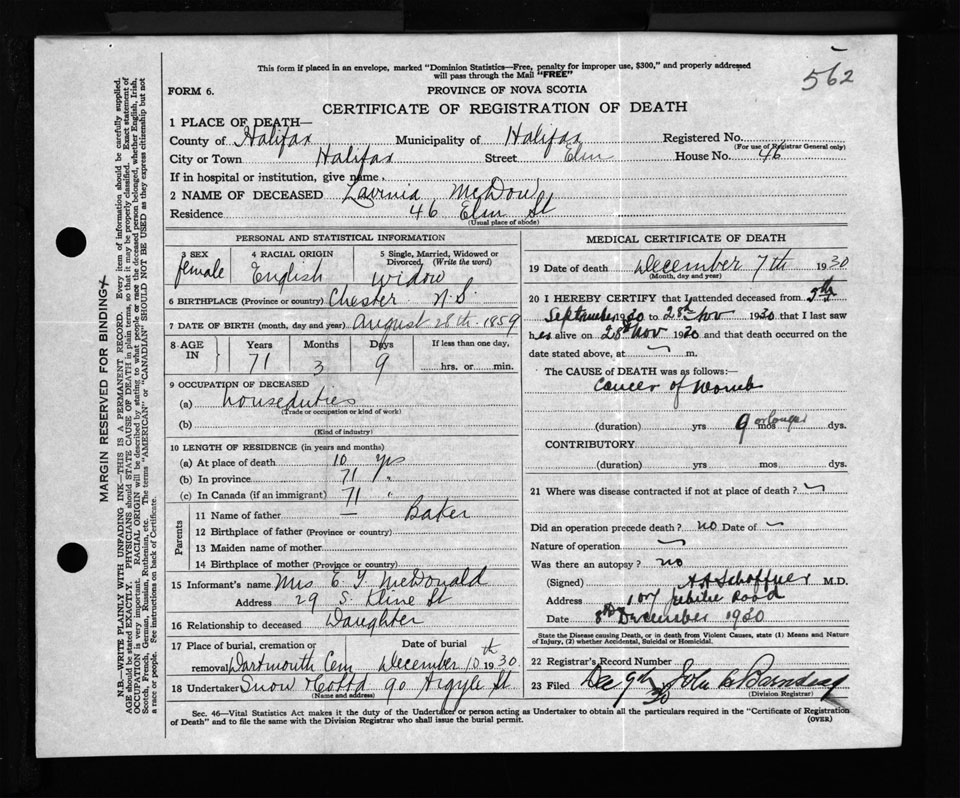 562
This form if placed in an envelope, marked "Dominion Statistics—Free, penalty for improper use, $300," and properly addressed
will pass through the Mail "FREE"
FORM 6.
PROVINCE OF NOVA SCOTIA
CERTIFICATE OF REGISTRATION OF DEATH
1 PLACE OF DEATH—
County of Halifax Municipality of Halifax Registered No.
(For use of Registrar General only)
City or Town Halifax Street Elm House No. 46
If in hospital or institution, give name
2 NAME OF DECEASED Lavinia McDow
Residence 46 Elm St
(Usual place of abode)
PERSONAL AND STATISTICAL INFORMATION
3 SEX 4 RACIAL ORIGIN 5 Single, Married, Widowed or
Divorced, (Write the word)
female English widow
6 BIRTHPLACE (Province or country) Chester N.S.
7 DATE OF BIRTH (month, day and year) August 28th 1859
8 AGE IN Years Months Days If less than one day,
71 3 9 hrs. or min.
9 OCCUPATION OF DECEASED
(a) houseduties
(Trade or occupation or kind of work)
(b)
(Kind of industry)
10 LENGTH OF RESIDENCE (in years and months)
(a) At place of death 10 yrs
(b) In province 71 "
(c) In Canada (if an immigrant) 71 "
Parents
11 Name of father — Baker
12 Birthplace of father (Province or country)
13 Maiden name of mother
14 Birthplace of mother (Province or country)
15 Informant's name Mrs E. McDonald
Address 29 S. Kline St
16 Relationship to deceased Daughter
17 Place of burial, cremation or Date of burial
removal Dartmouth Cem December 10th 1930
18 Undertaker Snow 90 Argyle St
(Name and address)
MEDICAL CERTIFICATE OF DEATH
19 Date of death December 7th 1930
(Month, day and year)
20 I HEREBY CERTIFY that I attended deceased from 5th
September 1930 to 28th Nov 1930 that I last saw
her alive on 28th Nov 1930 and that death occurred on the
date stated above, at — m.
The CAUSE of DEATH was as follows:—
Cancer of Womb
(duration) yrs 9 or longer mos dys.
CONTRIBUTORY
(duration) yrs mos dys.
21 Where was disease contracted if not at place of death? —
Did an operation precede death? no Date of —
Nature of operation —
Was there an autopsy? no
(Signed) A A Schaffner M.D.
Address Jubilee Road
Date 8th December 1930
State the Disease causing Death, or in death from Violent Causes, state (1) Means and Nature
of Injury, (2) whether Accidental, Suicidal or Homicidal.
22 Registrar's Record Number
23 Filed Dec 9th 30 John
(Division Registrar)
Sec. 46—Vital Statistics Act makes it the duty of the Undertaker or person acting as Undertaker to obtain all the particulars required in the "Certificate of Registration
of Death" and to file the same with the Division Registrar who shall issue the burial permit.
(OVER)
MARGIN RESERVED FOR BINDING
N.B.—WRITE PLAINLY WITH UNFADING INK—THIS IS A PERMANENT RECORD. Every item of information should be carefully supplied.
AGE should be stated EXACTLY. PHYSICIANS should STATE CAUSE OF DEATH in plain terms, so that it may be properly classified. Exact statement of
OCCUPATION is very important. RACIAL ORIGIN will be described by stating to what people or race the deceased person belonged, whether English, Irish,
Scotch, French, German, Russian, Ruthenian, etc. The terms "AMERICAN" or "CANADIAN" SHOULD NOT BE USED as they express citizenship but not
a race or people. See instructions on back of Certificate.